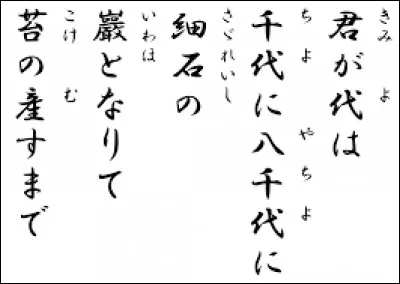 きみ よ
君が代は
ちよ やちよ
千代に八千代に
さゞれいし
細石の
いわほ
巖となりて
こけ む
苔の産すまで